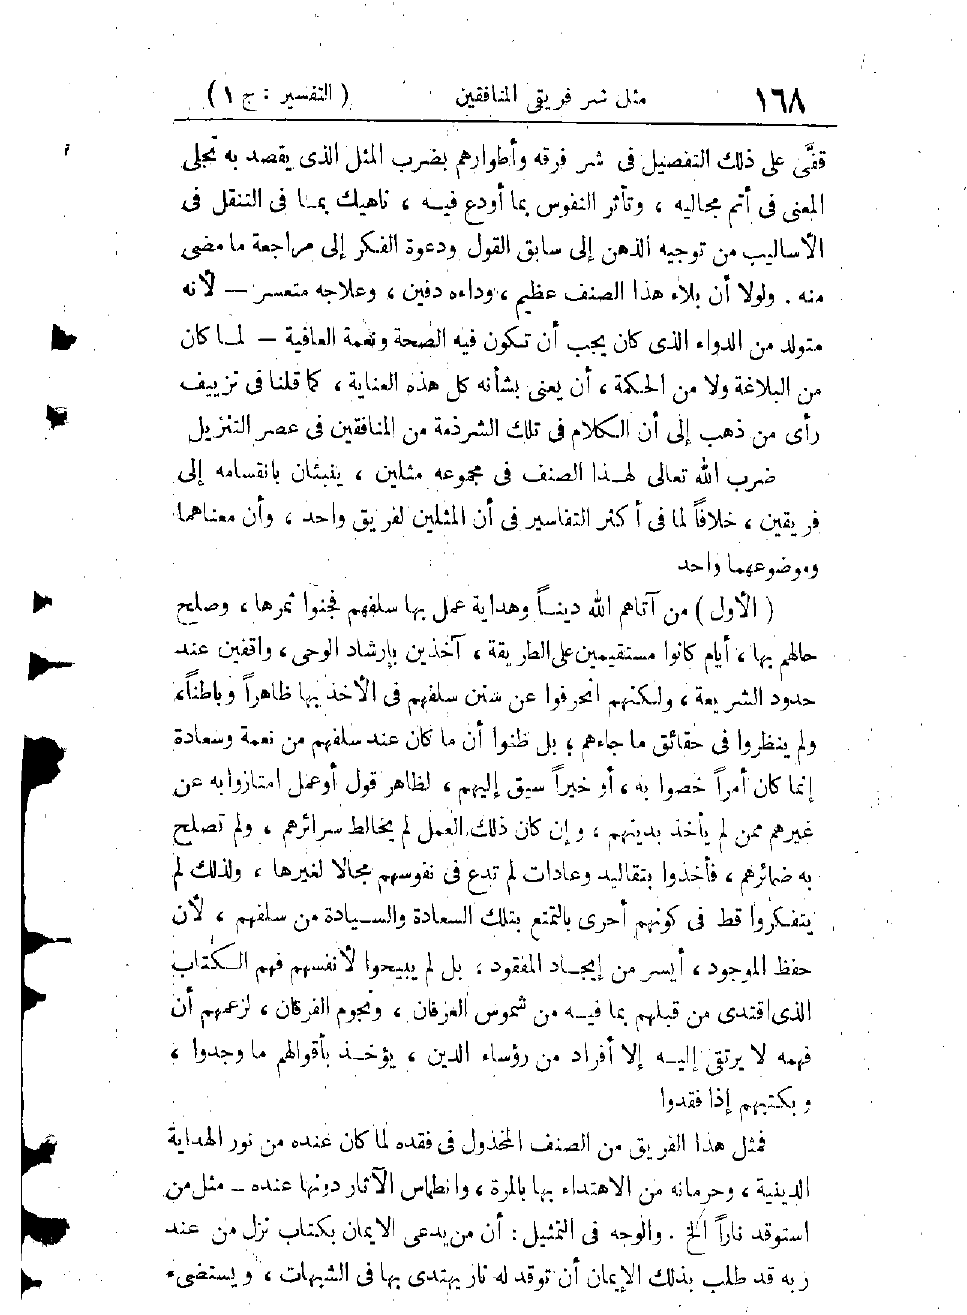 ١٦٨ مثل شر فريقى المنافقين ( التفسير : ج ١ )
قفَّى على ذلك التفصيل فى شر فرقه وأطوارهم بضرب المثل الذى يقصد به تجلى
المعنى فى أتم مجاليه ، وتأثر النفوس بما أودع فيـه ، ناهيك بمـا فى التنقل فى
الأساليب من توجيه الذهن إلى سابق القول ودعوة الفكر إلى مراجعة ما مضى
منه . ولولا أن بلاء هذا الصنف عظيم ، وداءه دفين ، وعلاجه متعسر — لأنه
متولد من الدواء الذى كان يجب أن تكون فيه الصحة ونعمة العافية — لمـا كان
من البلاغة ولا من الحكمة ، أن يعنى بشأنه كل هذه العناية ، كما قلنا فى تزييف
رأى من ذهب إلى أن الكلام فى تلك الشرذمة من المنافقين فى عصر التنزيل
ضرب الله تعالى لهـذا الصنف فى مجموعه مثلين ، ينبئان بانقسامه إلى
فريقين ، خلافاً لما فى أكثر التفاسير فى أن المثلين لفريق واحد ، وأن معناهما
وموضوعهما واحد
( الأول ) من آتاهم الله دينـاً وهداية عمل بها سلفهم فجنوا ثمرها ، وصلح
حالهم بها ، أيام كانوا مستقيمين على الطريقة ، آخذين بإرشاد الوحى ، واقفين عند
حدود الشريعة ، ولكنهم انحرفوا عن سنن سلفهم فى الأخذ بها ظاهراً وباطناً،
ولم ينظروا فى حقائق ما جاءهم ، بل ظنوا أن ما كان عند سلفهم من نعمة وسعادة
إنما كان أمراً خصوا به ، أو خيراً سيق إليهم ، لظاهر قول أوعمل امتازوا به عن
غيرهم ممن لم يأخذ بدينهم ، وإن كان ذلك العمل لم يخالط سرائرهم ، ولم تصلح
به ضمائرهم ، فأخذوا بتقاليد وعادات لم تدع فى نفوسهم مجالا لغيرها ، ولذلك لم
يتفكروا قط فى كونهم أحرى بالتمتع بتلك السعادة والسـيادة من سلفهم ، لأن
حفظ الموجود ، أيسر من إيجـاد المفقود ، بل لم يبيحوا لأنفسهم فهم الكتاب
الذى اقتدى من قبلهم بما فيـه من شموس العرفان ، ونجوم الفرقان ، لزعمهم أن
فهمه لا يرتقى إليـه إلا أفراد من رؤساء الدين ، يؤخـذ بأقوالهم ما وجدوا ،
وبكتبهم إذا فقدوا
فمثل هذا الفريق من الصنف المخذول فى فقده لما كان عنده من نور الهداية
الدينية ، وحرمانه من الاهتداء بها بالمرة ، وانطماس الآثار دونها عنده — مثل من
استوقد ناراً الخ . والوجه فى التمثيل : أن من يدعى الايمان بكتاب نزل من عند
ربه قد طلب بذلك الإيمان أن توقد له نار يهتدى بها فى الشبهات ، ويستضىء